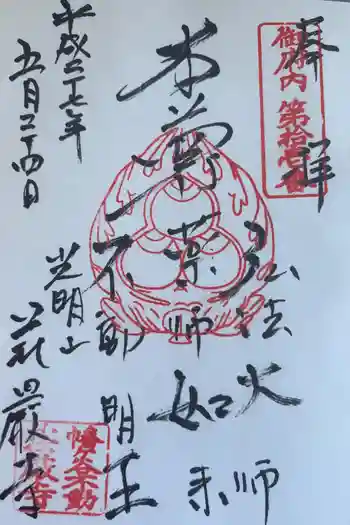 奉拝
御府内 第拾壱番
弘法大師
本尊 薬師如来
不動明王
光明山 荘厳寺
幡ヶ谷不動
荘厳寺
平成二十七年
五月二十四日